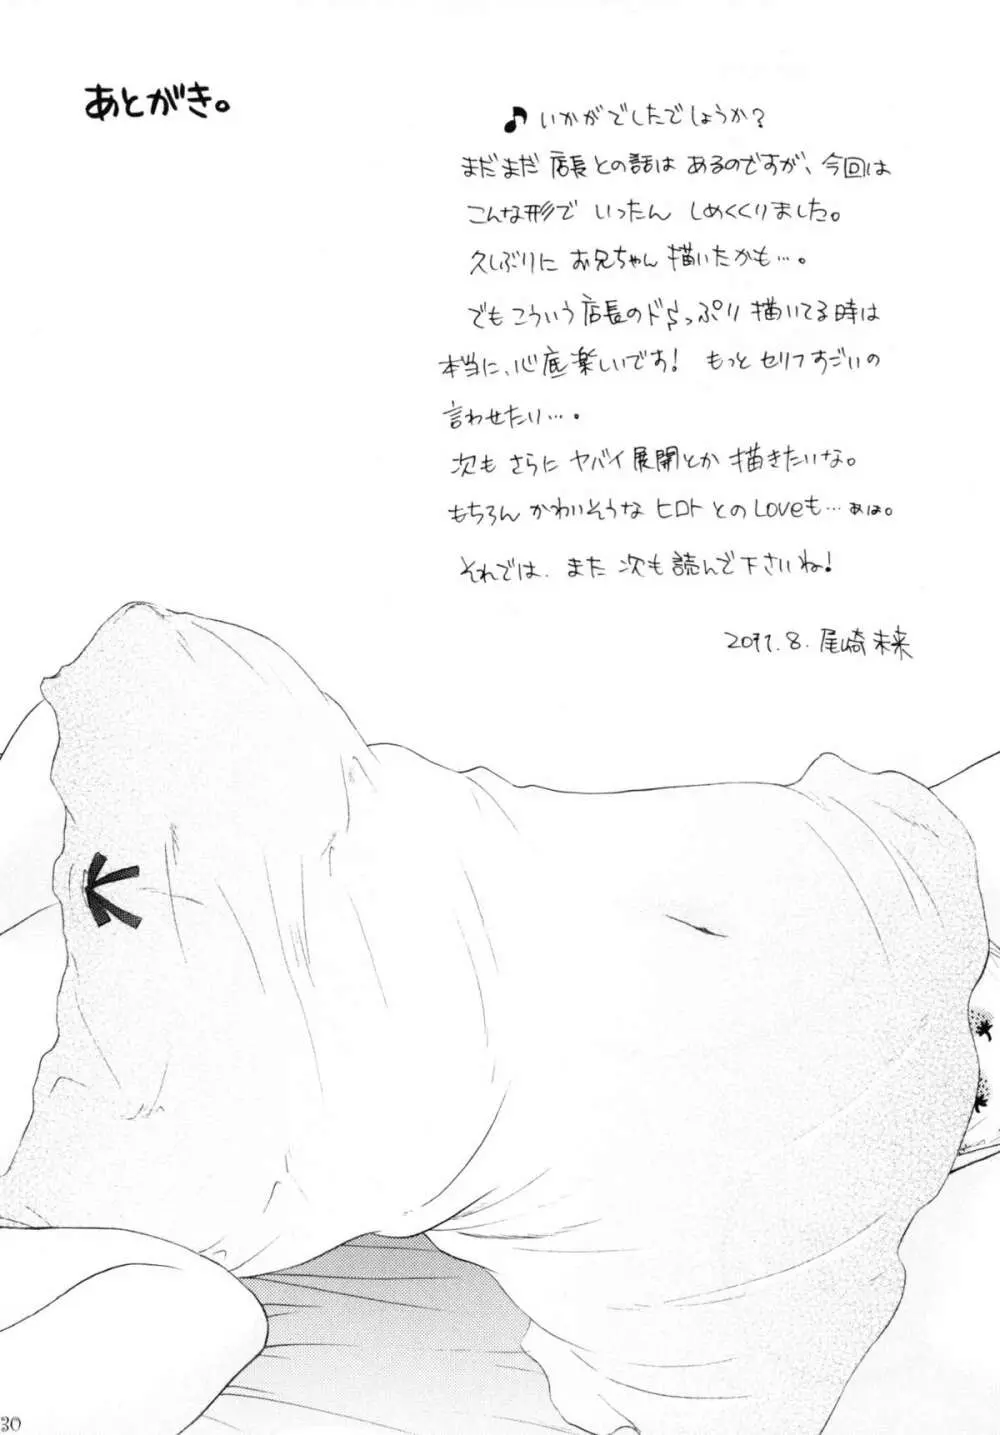 あとがき。
♪いかがでしたでしょうか?
まだまだ店長との話はあるのですが、今回は
こんな形でいったんしめくくりました。
久しぶりにお兄ちゃん描いたかも…。
でもこういう店長のどっぷり描いてる時は
本当に、心底楽しいです! もっとセリフすごいの
言わせたい…。
次もさらにヤバイ展開とか描きたいな。
もちろんかわいそうなヒロトとのLoveも…あは。
それでは、また次も読んで下さいね!
2011.8.尾崎未来
30